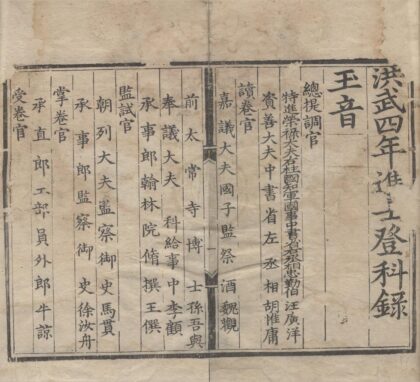 洪武四年進士登科錄
玉音
總提調官
特進榮祿大夫右柱國知軍國事中書右丞相忠勤伯汪廣洋
資善大夫中書省左丞相胡惟庸
讀卷官
嘉議大夫國子監祭酒魏觀
前太常寺博士孫吾與
奉議大夫科給事中李顧
承事郎翰林院脩撰王僎
監試官
朝列大夫監察御史馬貫
承事郎監察御史徐汝舟
掌卷官
承直郎工部員外郎牛諒
受卷官